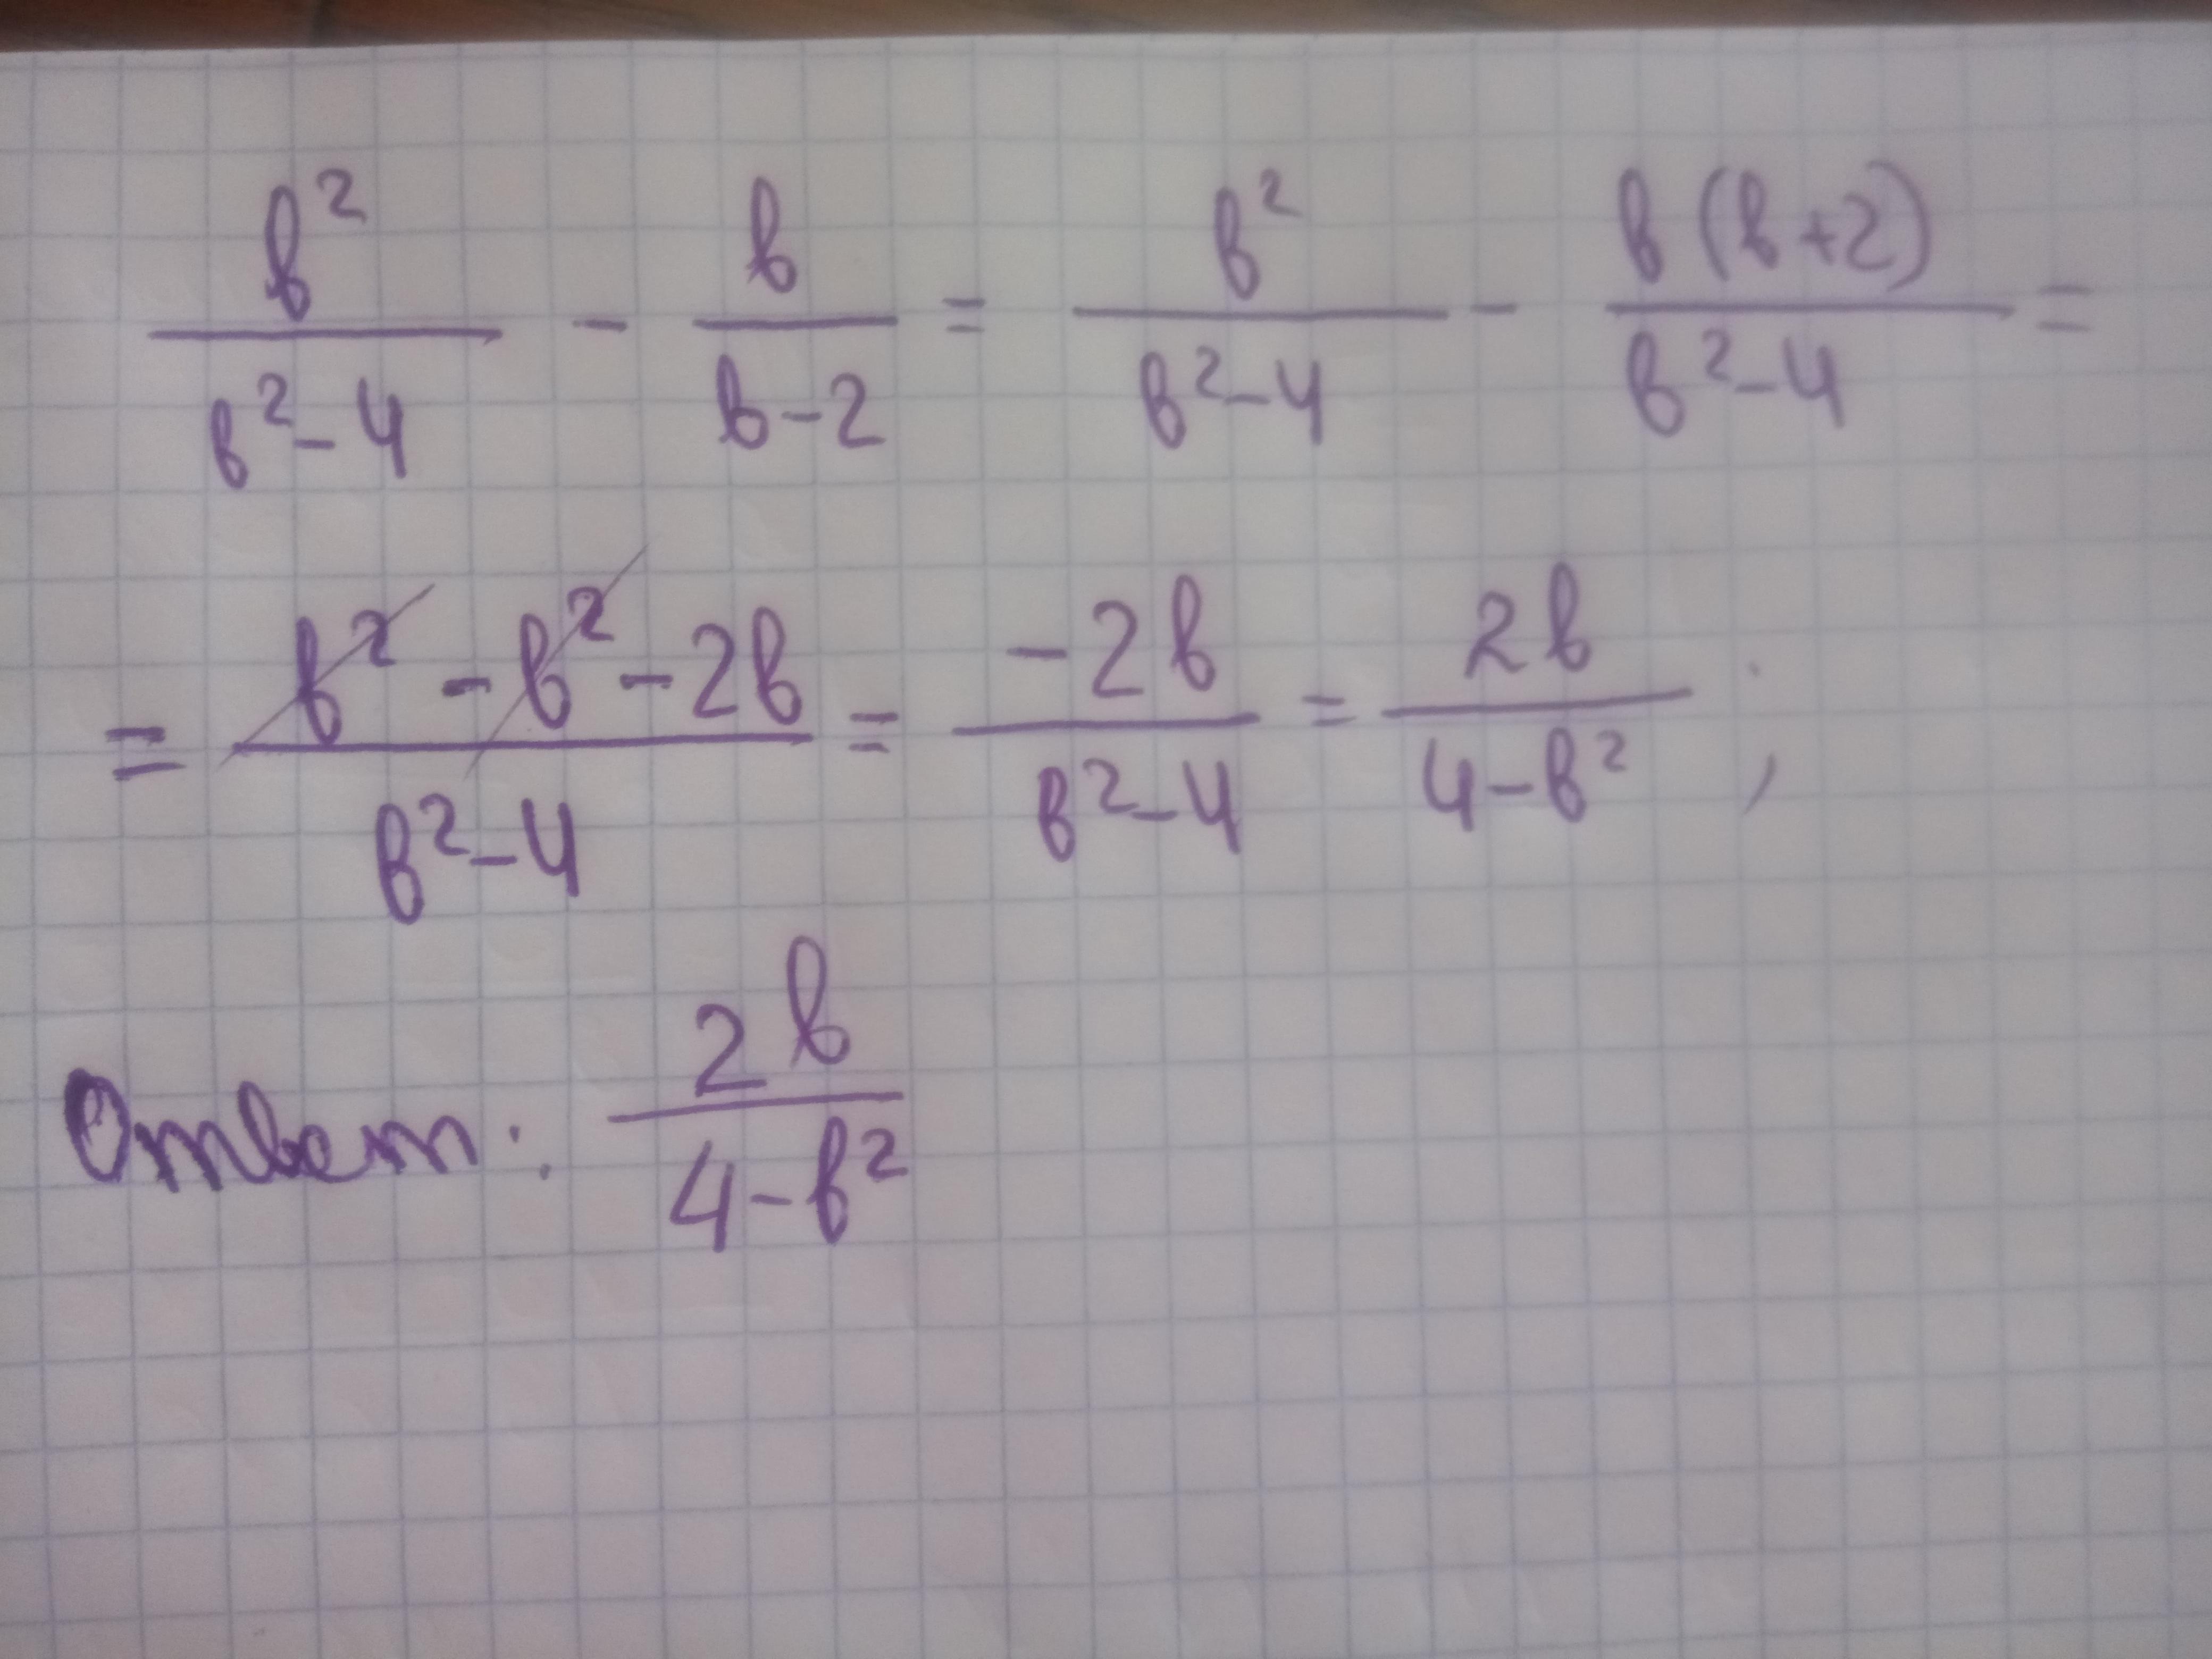 b²/(b²-4) - b/(b-2) = b²/(b²-4) - b(b+2)/(b²-4) =
= (b²-b²-2b)/(b²-4) = -2b/(b²-4) = 2b/(4-b²) ;
Ответ: 2b/(4-b²)